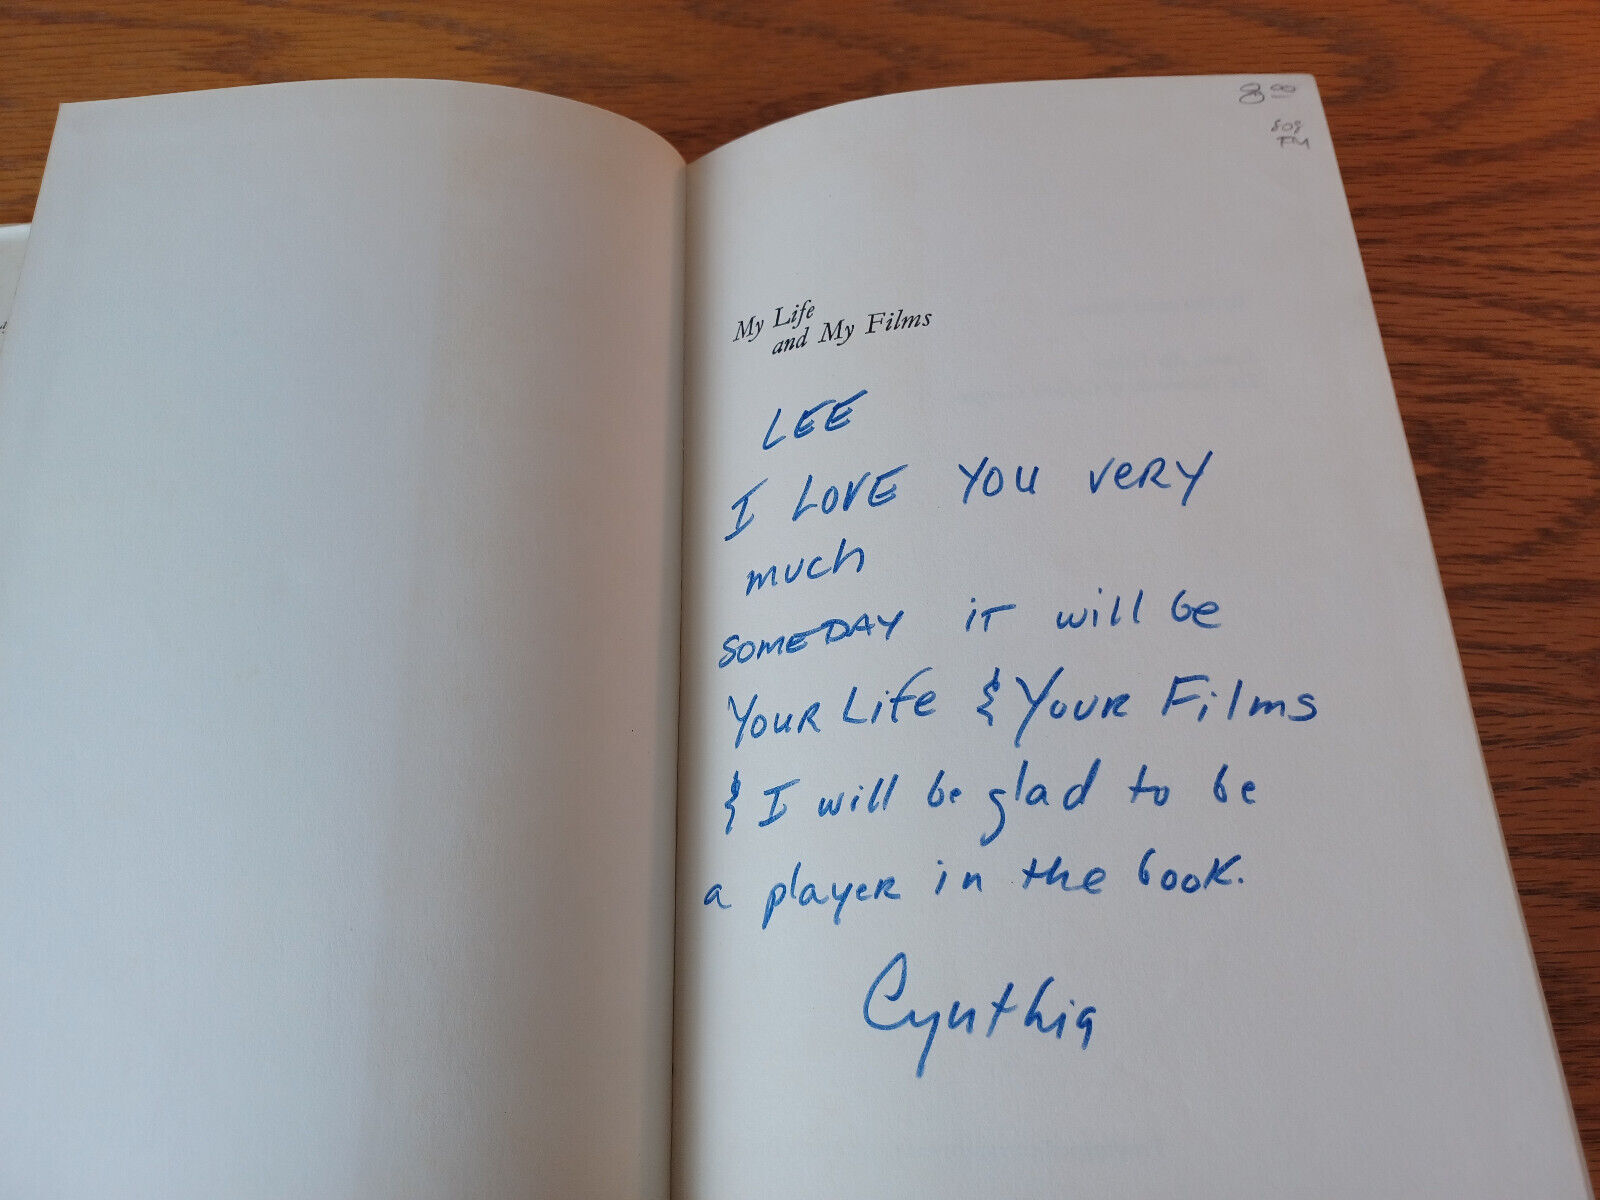 8 00
My Life
and My Films
LEE
I LOVE YOU VERY
much
SOMEDAY IT will be
YOUR Life & YOUR Films
& I will be glad to be
a player in the book.
Cynthia